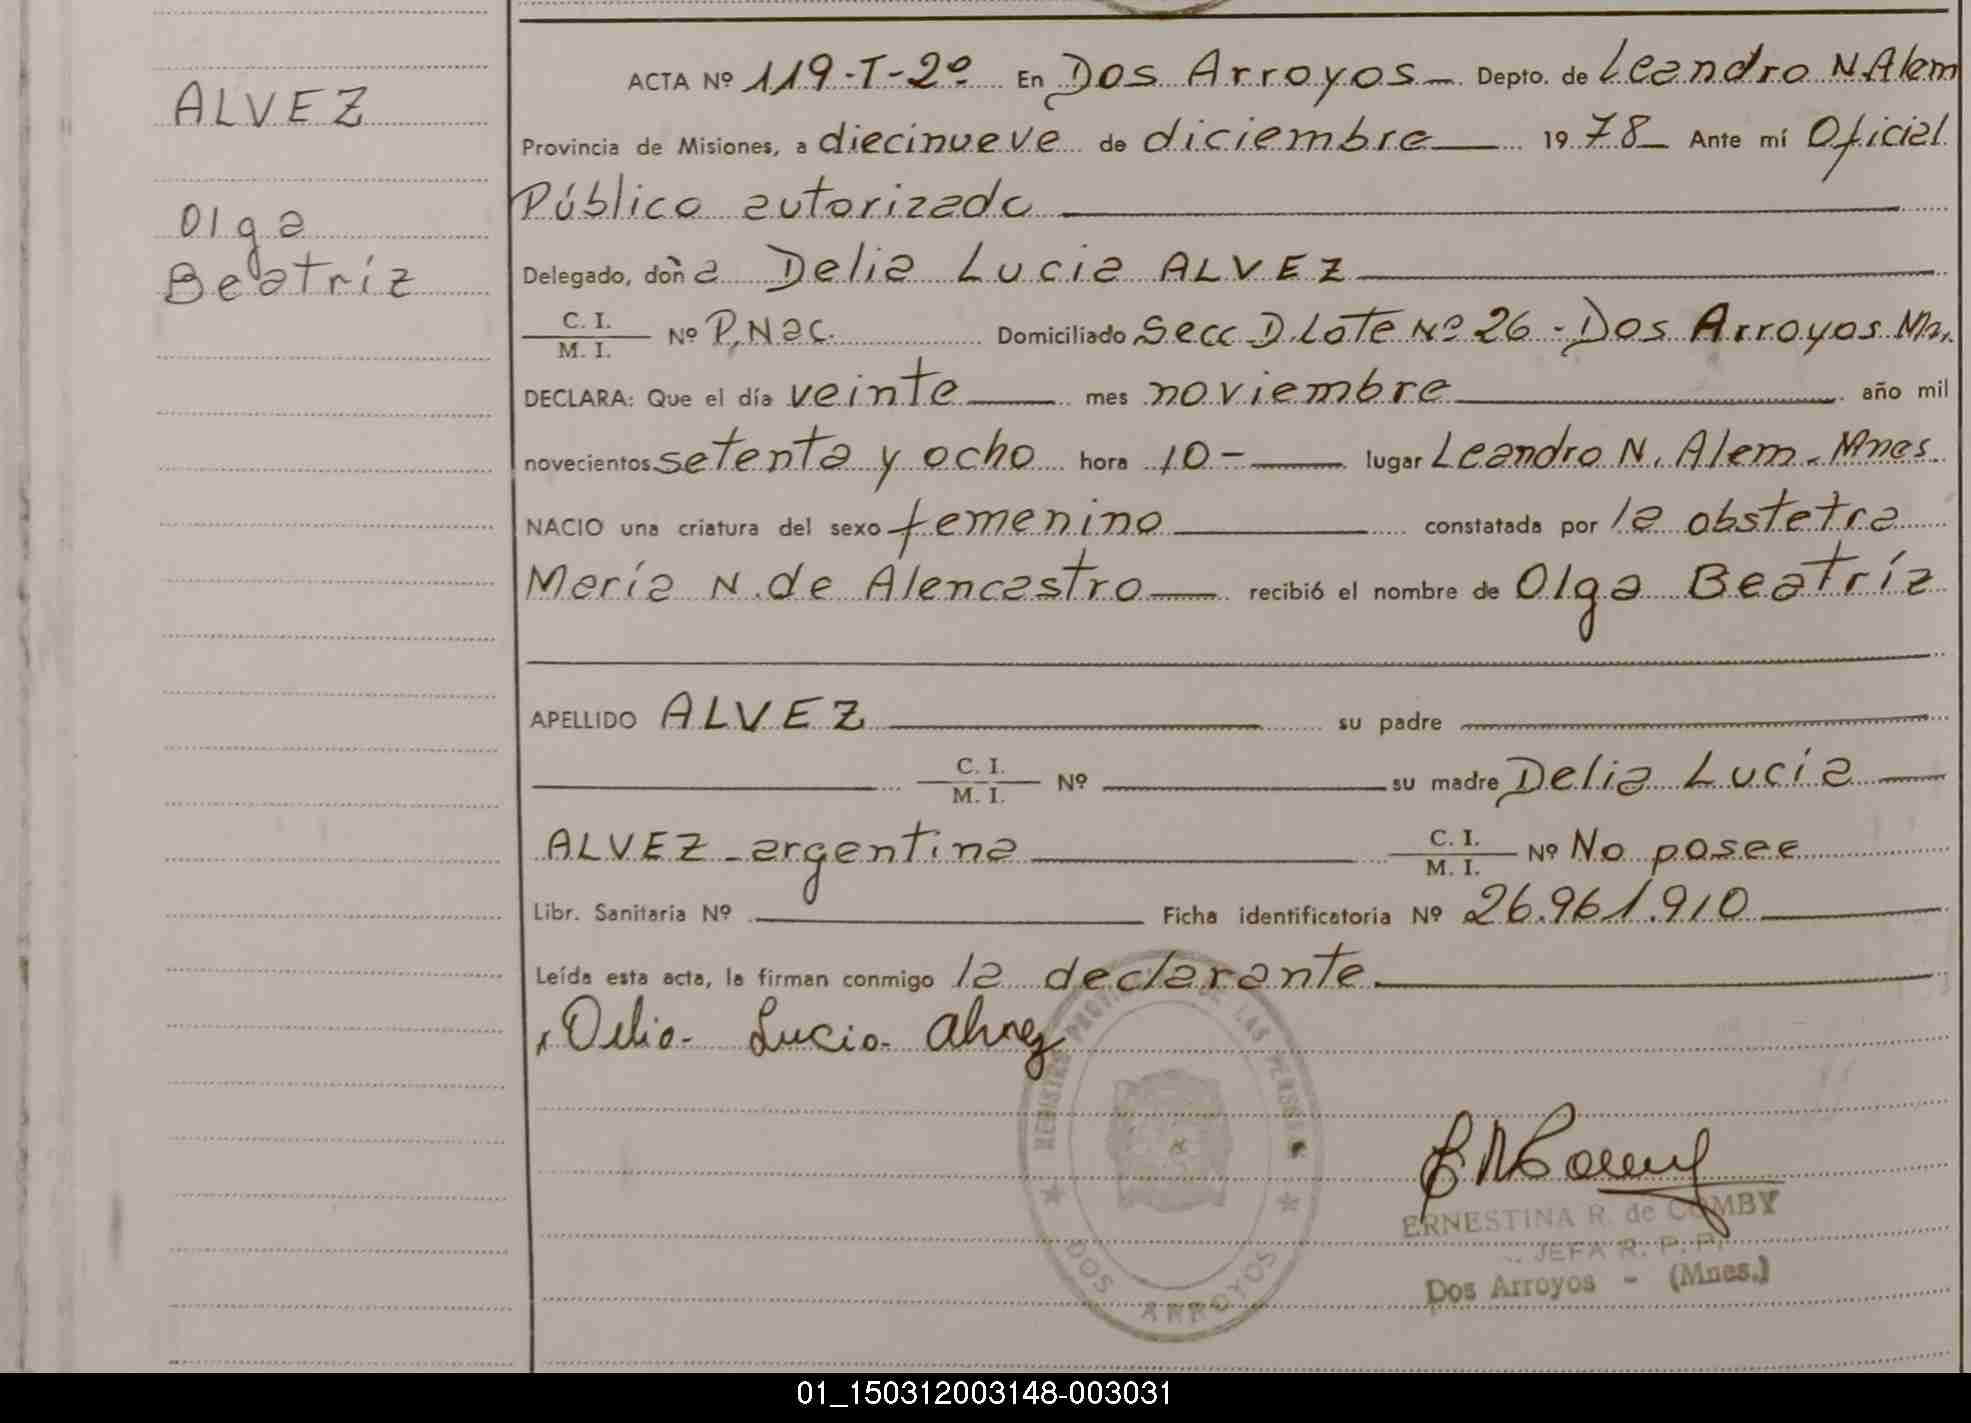 ALVEZ
Olga
Beatríz
ACTA Nº 119-T-2º En Dos Arroyos Depto. de Leandro N. Alem
Provincia de Misiones, a diecinueve de diciembre 1978 Ante mí Oficial
Público autorizado
Delegado, doña Delia Lucia ALVEZ
C. I.
M. I. Nº P. Nac. Domiciliado Secc D. Lote Nº 26 - Dos Arroyos Mn.
DECLARA: Que el día veinte mes noviembre año mil
novecientos setenta y ocho hora 10 - lugar Leandro N. Alem - Mnes.
NACIO una criatura del sexo femenino constatada por la obstetra
María N. de Alencastro recibió el nombre de Olga Beatríz
APELLIDO ALVEZ su padre
C. I.
M. I. Nº su madre Delia Lucía
ALVEZ - argentina C. I.
M. I. Nº No posee
Libr. Sanitaria Nº Ficha identificatoria Nº 26.961.910
Leída esta acta, la firman conmigo la declarante
Delia Lucia Alvez
REGISTRO PROVINCIAL DE LAS PERSONAS
DOS ARROYOS
ERNESTINA R. de COMBY
JEFA R. P. P.
Dos Arroyos - (Mnes.)
01_150312003148-003031